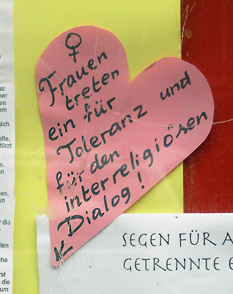 ♀
Frauen
treten
ein für
Toleranz und
für den
interreligiösen
Dialog!
SEGEN FÜR A
GETRENNTE E